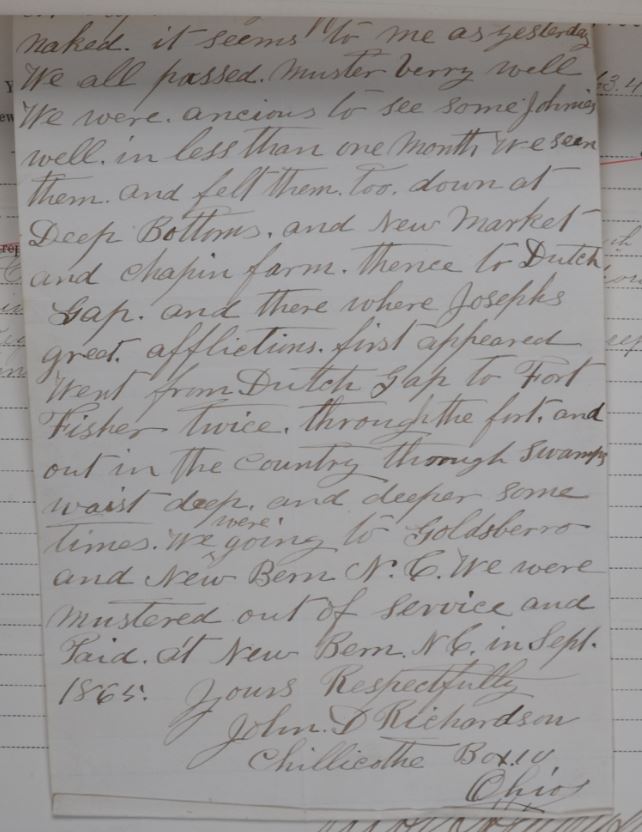 naked. it seems to me as yesterday
We all passed. muster berry well
We were. ancious to see some Johnies
well. in less than one month, We seen
them. and felt them. too. down at
Deep Bottoms. and New Market
and chapin farm. thence to Dutch
Gap. and there where Josephs
great. afflictions. first appeared
Went from Dutch Gap to Fort
Fisher twice. through the fort. and
out in the country through Swamps
waist deep. and deeper some
times. We were going to Goldsberro
and New Bern N. C. We were
mustered out of service and
Paid. at New Bern. N C. in Sept.
1865. Yours Respectfully
John. D Richardson
Chillicothe Box
Ohio